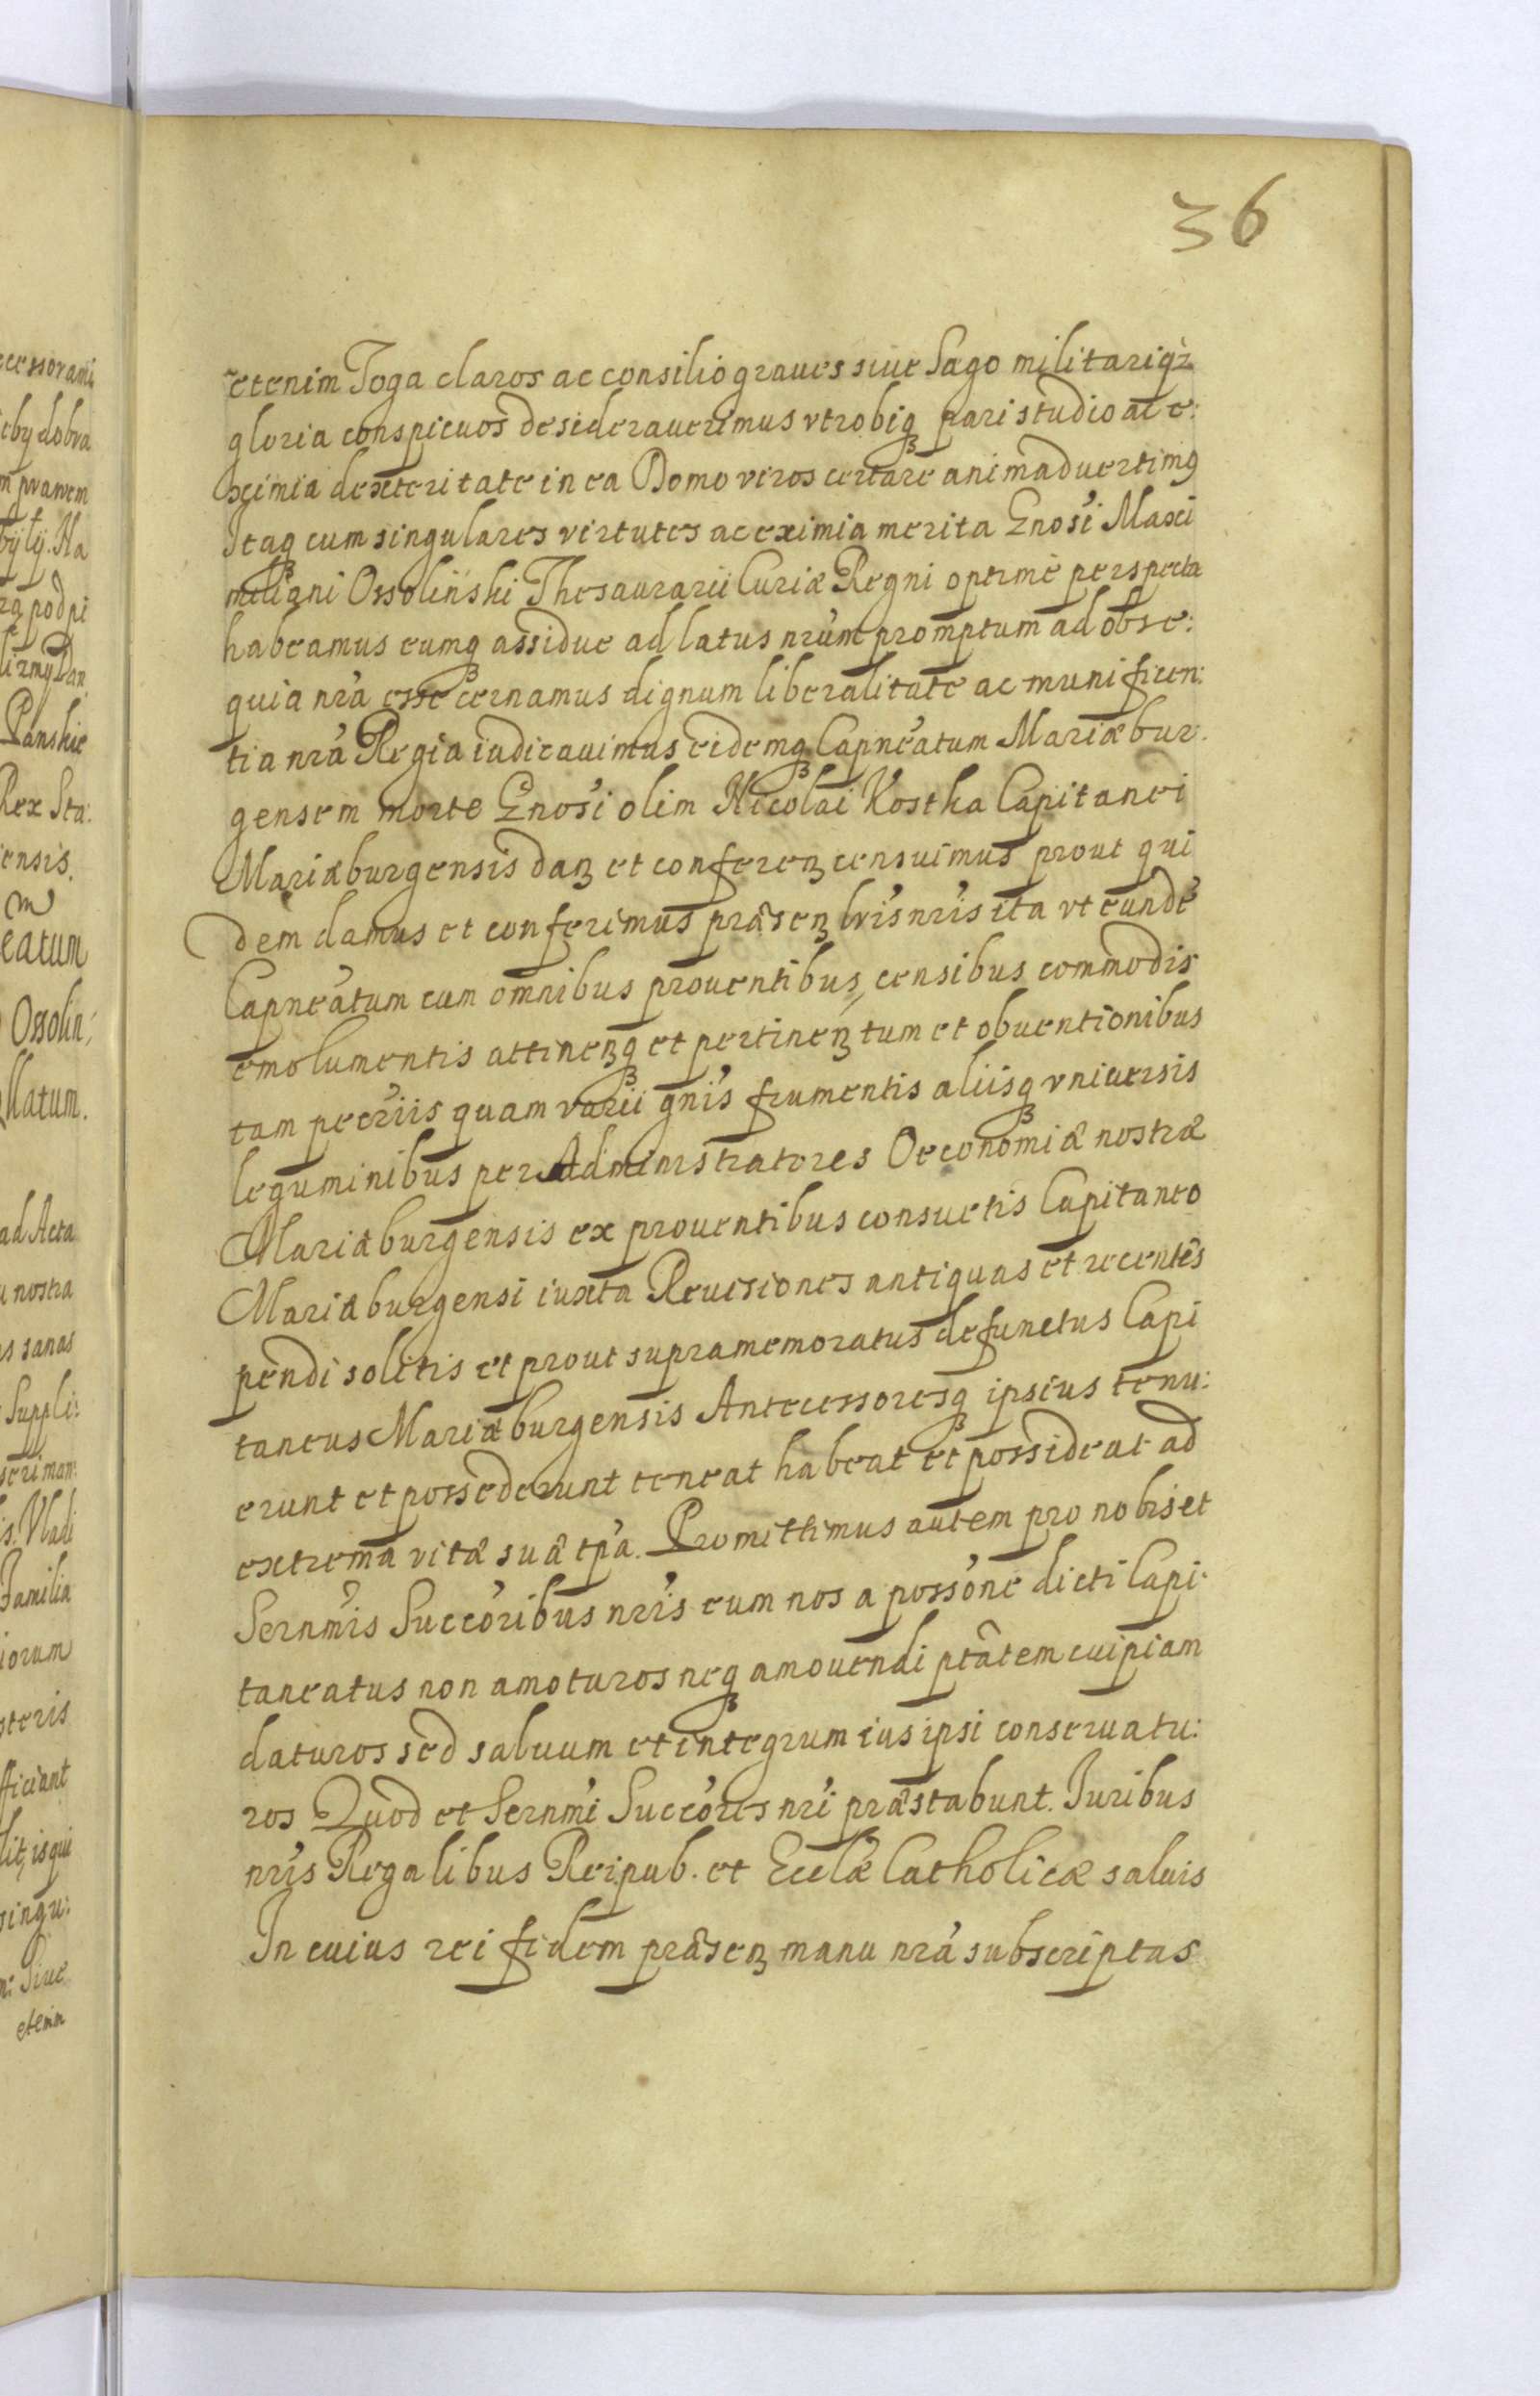 36
etenim Toga claros ac consilio graues siue Sago militariq₃
gloria conspicuos desiderauerimus vtrobiq₃ pari studio ac e:
ximia dexteritate in ea Domo viros certare animaduertimꝰ
Itaq₃ cum singulares virtutes ac eximia merita Gnosi Maxi
miliani Ossolinski Thesaurarii Curiæ Regni optime perspecta
habeamus eumq₃ assidue ad latus nrum promptum ad obse:
quia nra esse cernamus dignum liberalitate ac munificen:
tia nra Regia iudicauimus eidemq₃ Capneatum Mariæbur:
gensem morte Gnosi olim Nicolai Kostka Capitanei
Mariæburgensis danʒ et conferenʒ censuimus prout qui
dem damus et conferimus præsenʒ lris nris ita vt eunde
Capneatum cum omnibus prouentibus, censibus commodis
emolumentis attinenʒq₃ et pertinenʒ tum et obuentionibus
tam pecriis quam varii gnis frumentis aliisq₃ vniuersis
leguminibus per Administratores Oeconomiæ nostræ
Mariæburgensis ex prouentibus consuetis Capitaneo
Mariæburgensi iuxta Reuisiones antiquas et recentes
pendi solitis et prout supramemoratus defunctus Capi
taneus Mariæburgensis Antecessoresq₃ ipsius tenu:
erunt et possederunt teneat habeat et possideat ad
extrema vitæ suæ tpa. Promittimus autem pro nobis et
Sernmis Succoribus nris eum nos a possone dicti Capi:
taneatus non amoturos neq₃ amouendi ptatem cuipiam
daturos sed saluum et integrum ius ipsi conseruatu:
ros Quod et Sernmi Succores nri præstabunt. Iuribus
nris Regalibus Reipub. et Ecclæ Catholicæ saluis
In cuius rei fidem præsenʒ manu nra subscriptas